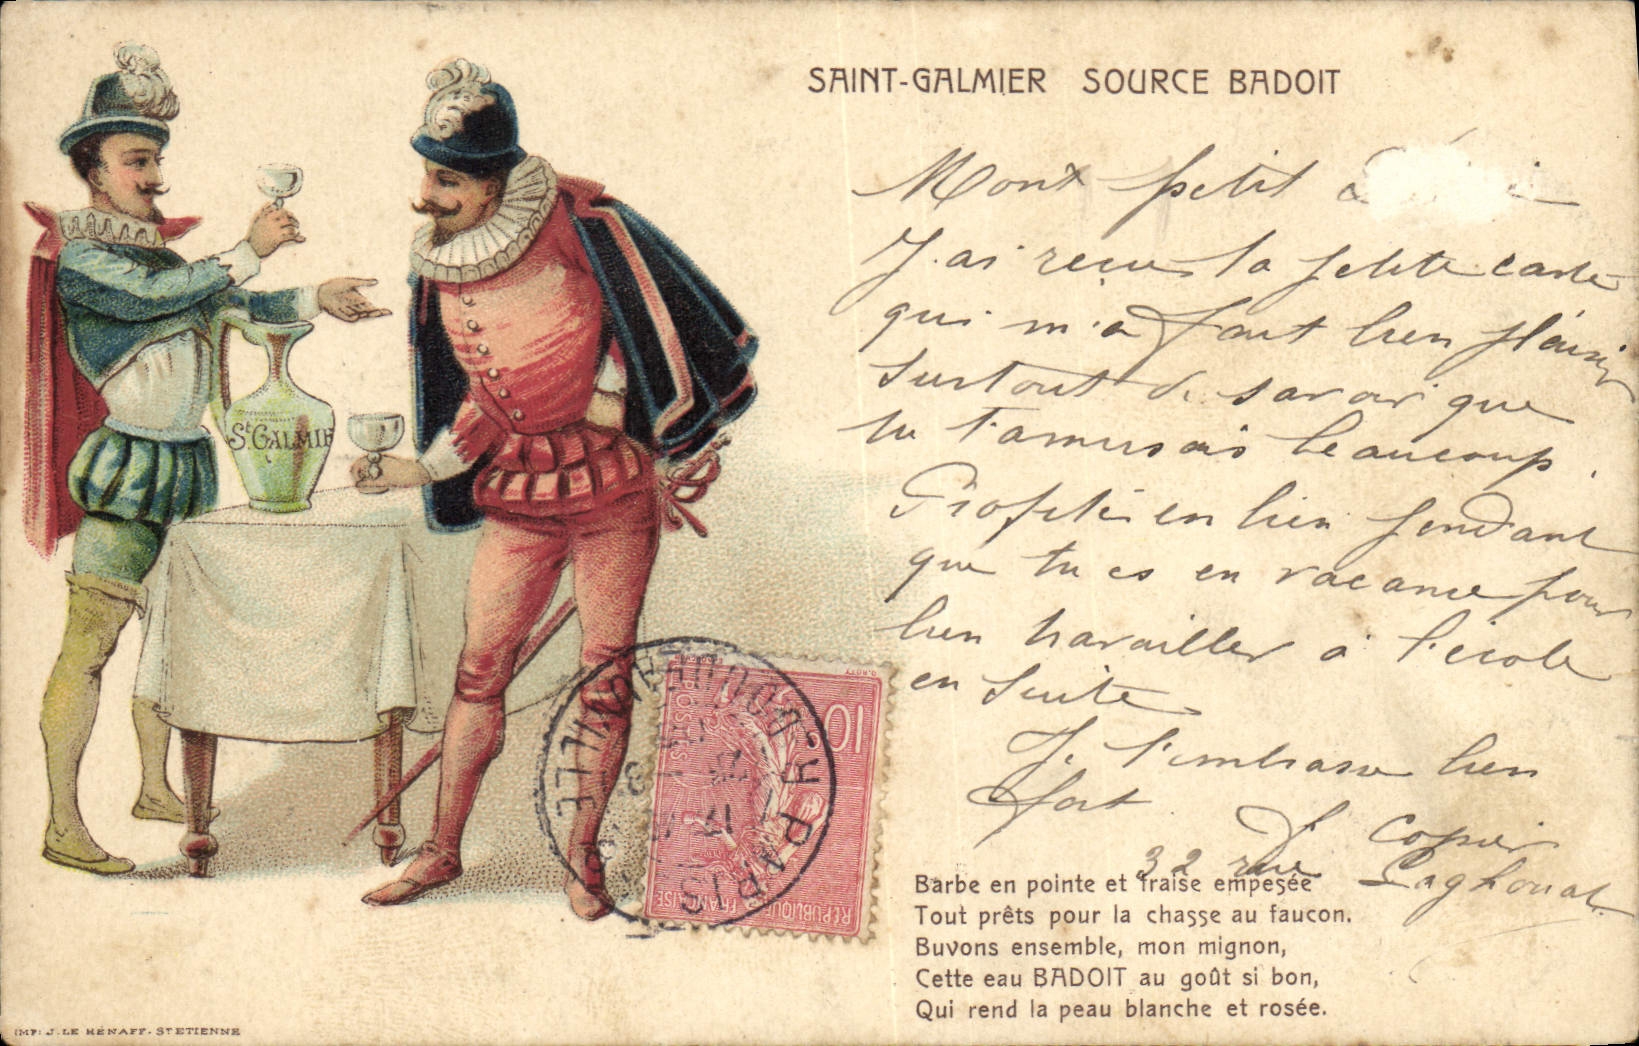 SAINT-GALMIER SOURCE BADOIT
Mont petit
J'ai reçue la petite carte
qui m'a fait bien plaisir
surtout de savoir que
tu t'amusais beaucoup.
Profite en bien pendant
que tu es en vacance pour
bien travailler à l'école
en suite
Je t'embrasse bien
fort
32 rue Laghouat
Barbe en pointe et fraise empesée
Tout prêts pour la chasse au faucon.
Buvons ensemble, mon mignon,
Cette eau BADOIT au goût si bon,
Qui rend la peau blanche et rosée.
St GALMIE
10c
POSTES
RÉPUBLIQUE FRANÇAISE
O. ROTY
PARIS
IMP: J. LE HÉNAFF - ST ETIENNE